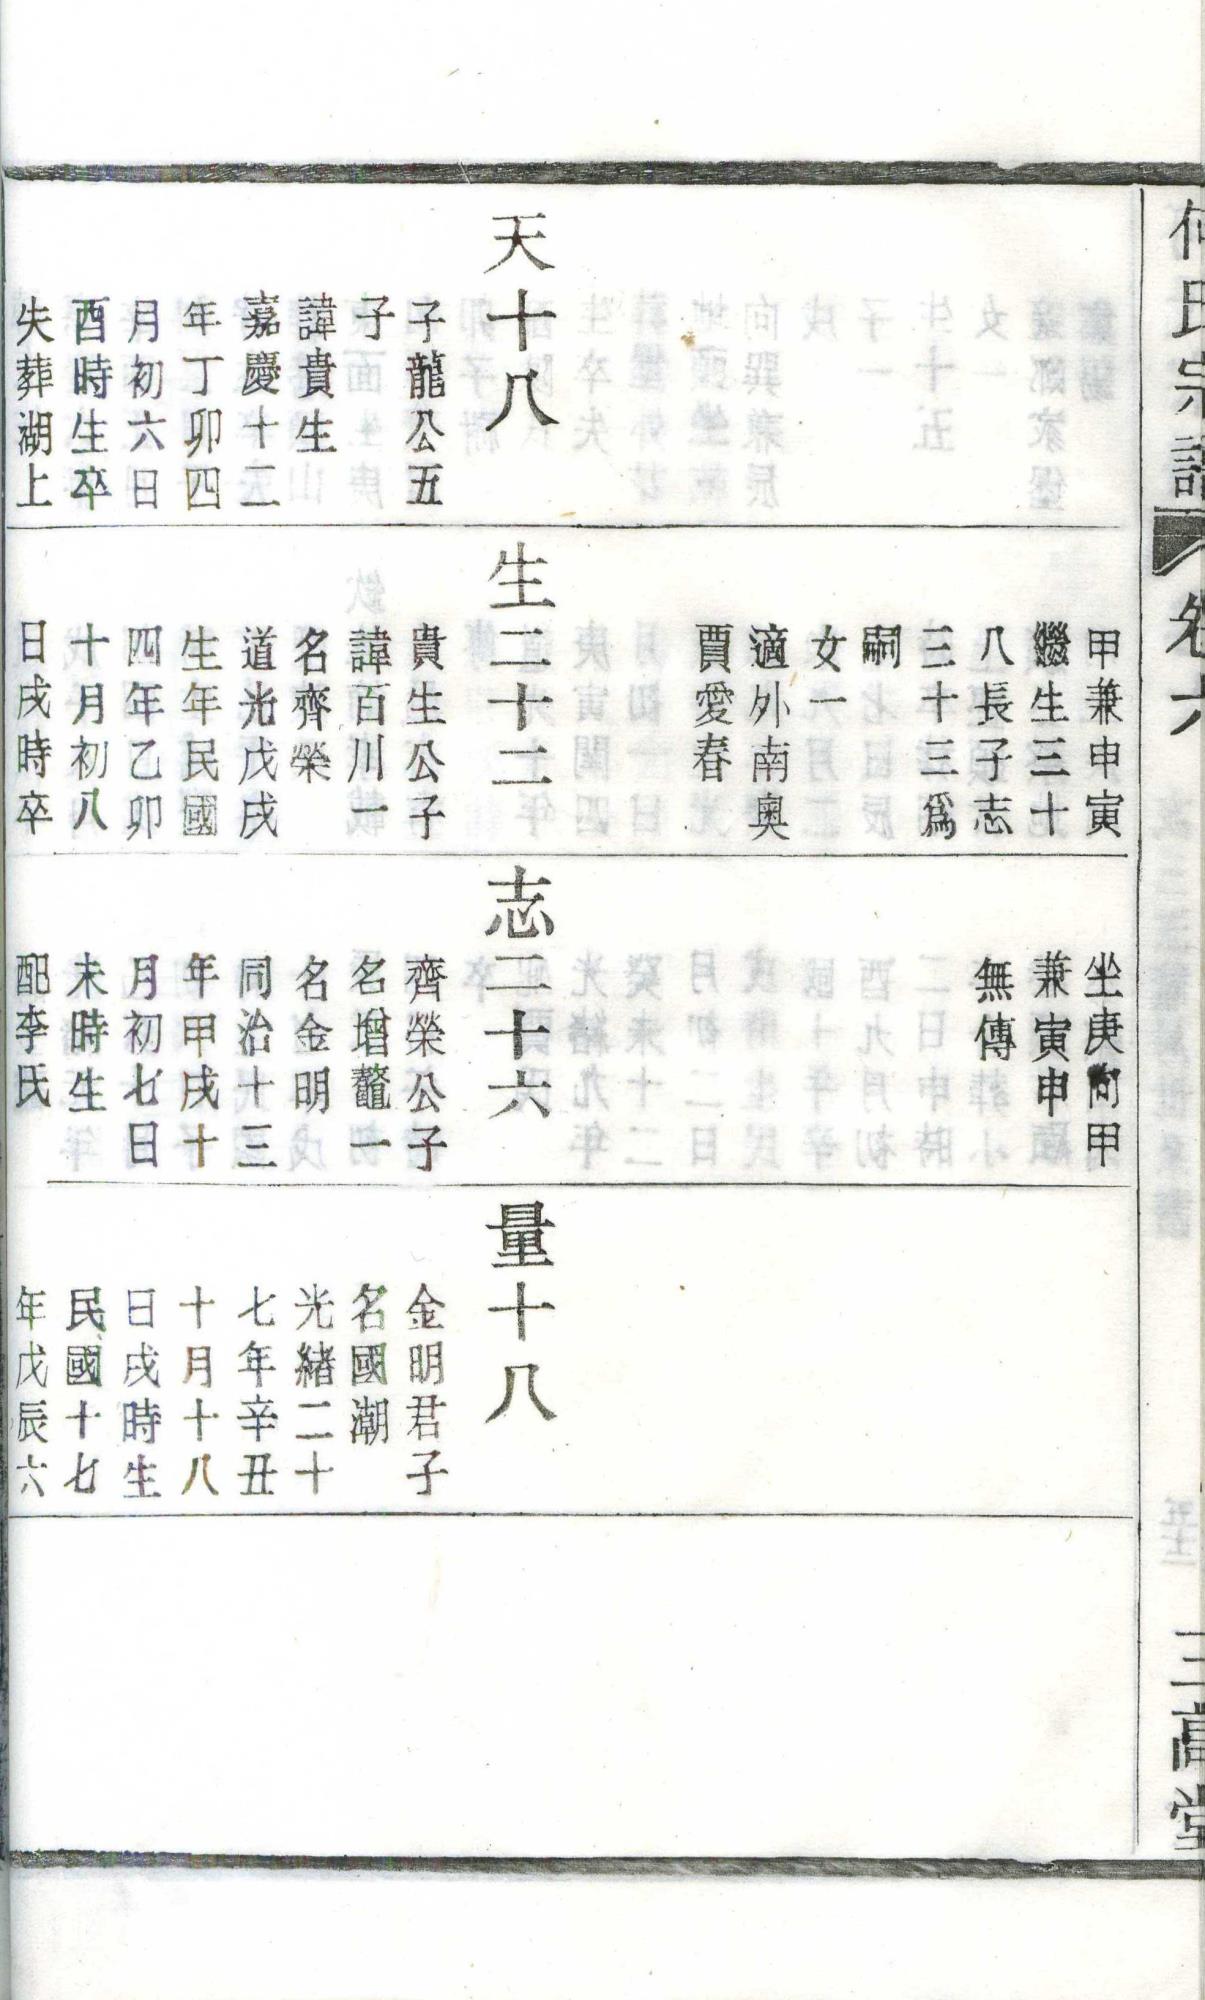 何氏宗譜
卷六
三高堂
天十八
子龍公五
子
諱貴生
嘉慶十二
年丁卯四
月初六日
酉時生卒
失葬湖上
甲兼申寅
繼生三十
八長子志
三十三爲
嗣
女一
適外南奧
賈愛春
生二十二
貴生公子
諱百川一
名齊榮
道光戊戌
生年民國
四年乙卯
十月初八
日戌時卒
坐庚向甲
兼寅申
無傳
志二十六
齊榮公子
名增鼇一
名金明
同治十三
年甲戌十
月初七日
未時生
配李氏
量十八
金明君子
名國潮
光緒二十
七年辛丑
十月十八
日戌時生
民國十七
年戊辰六